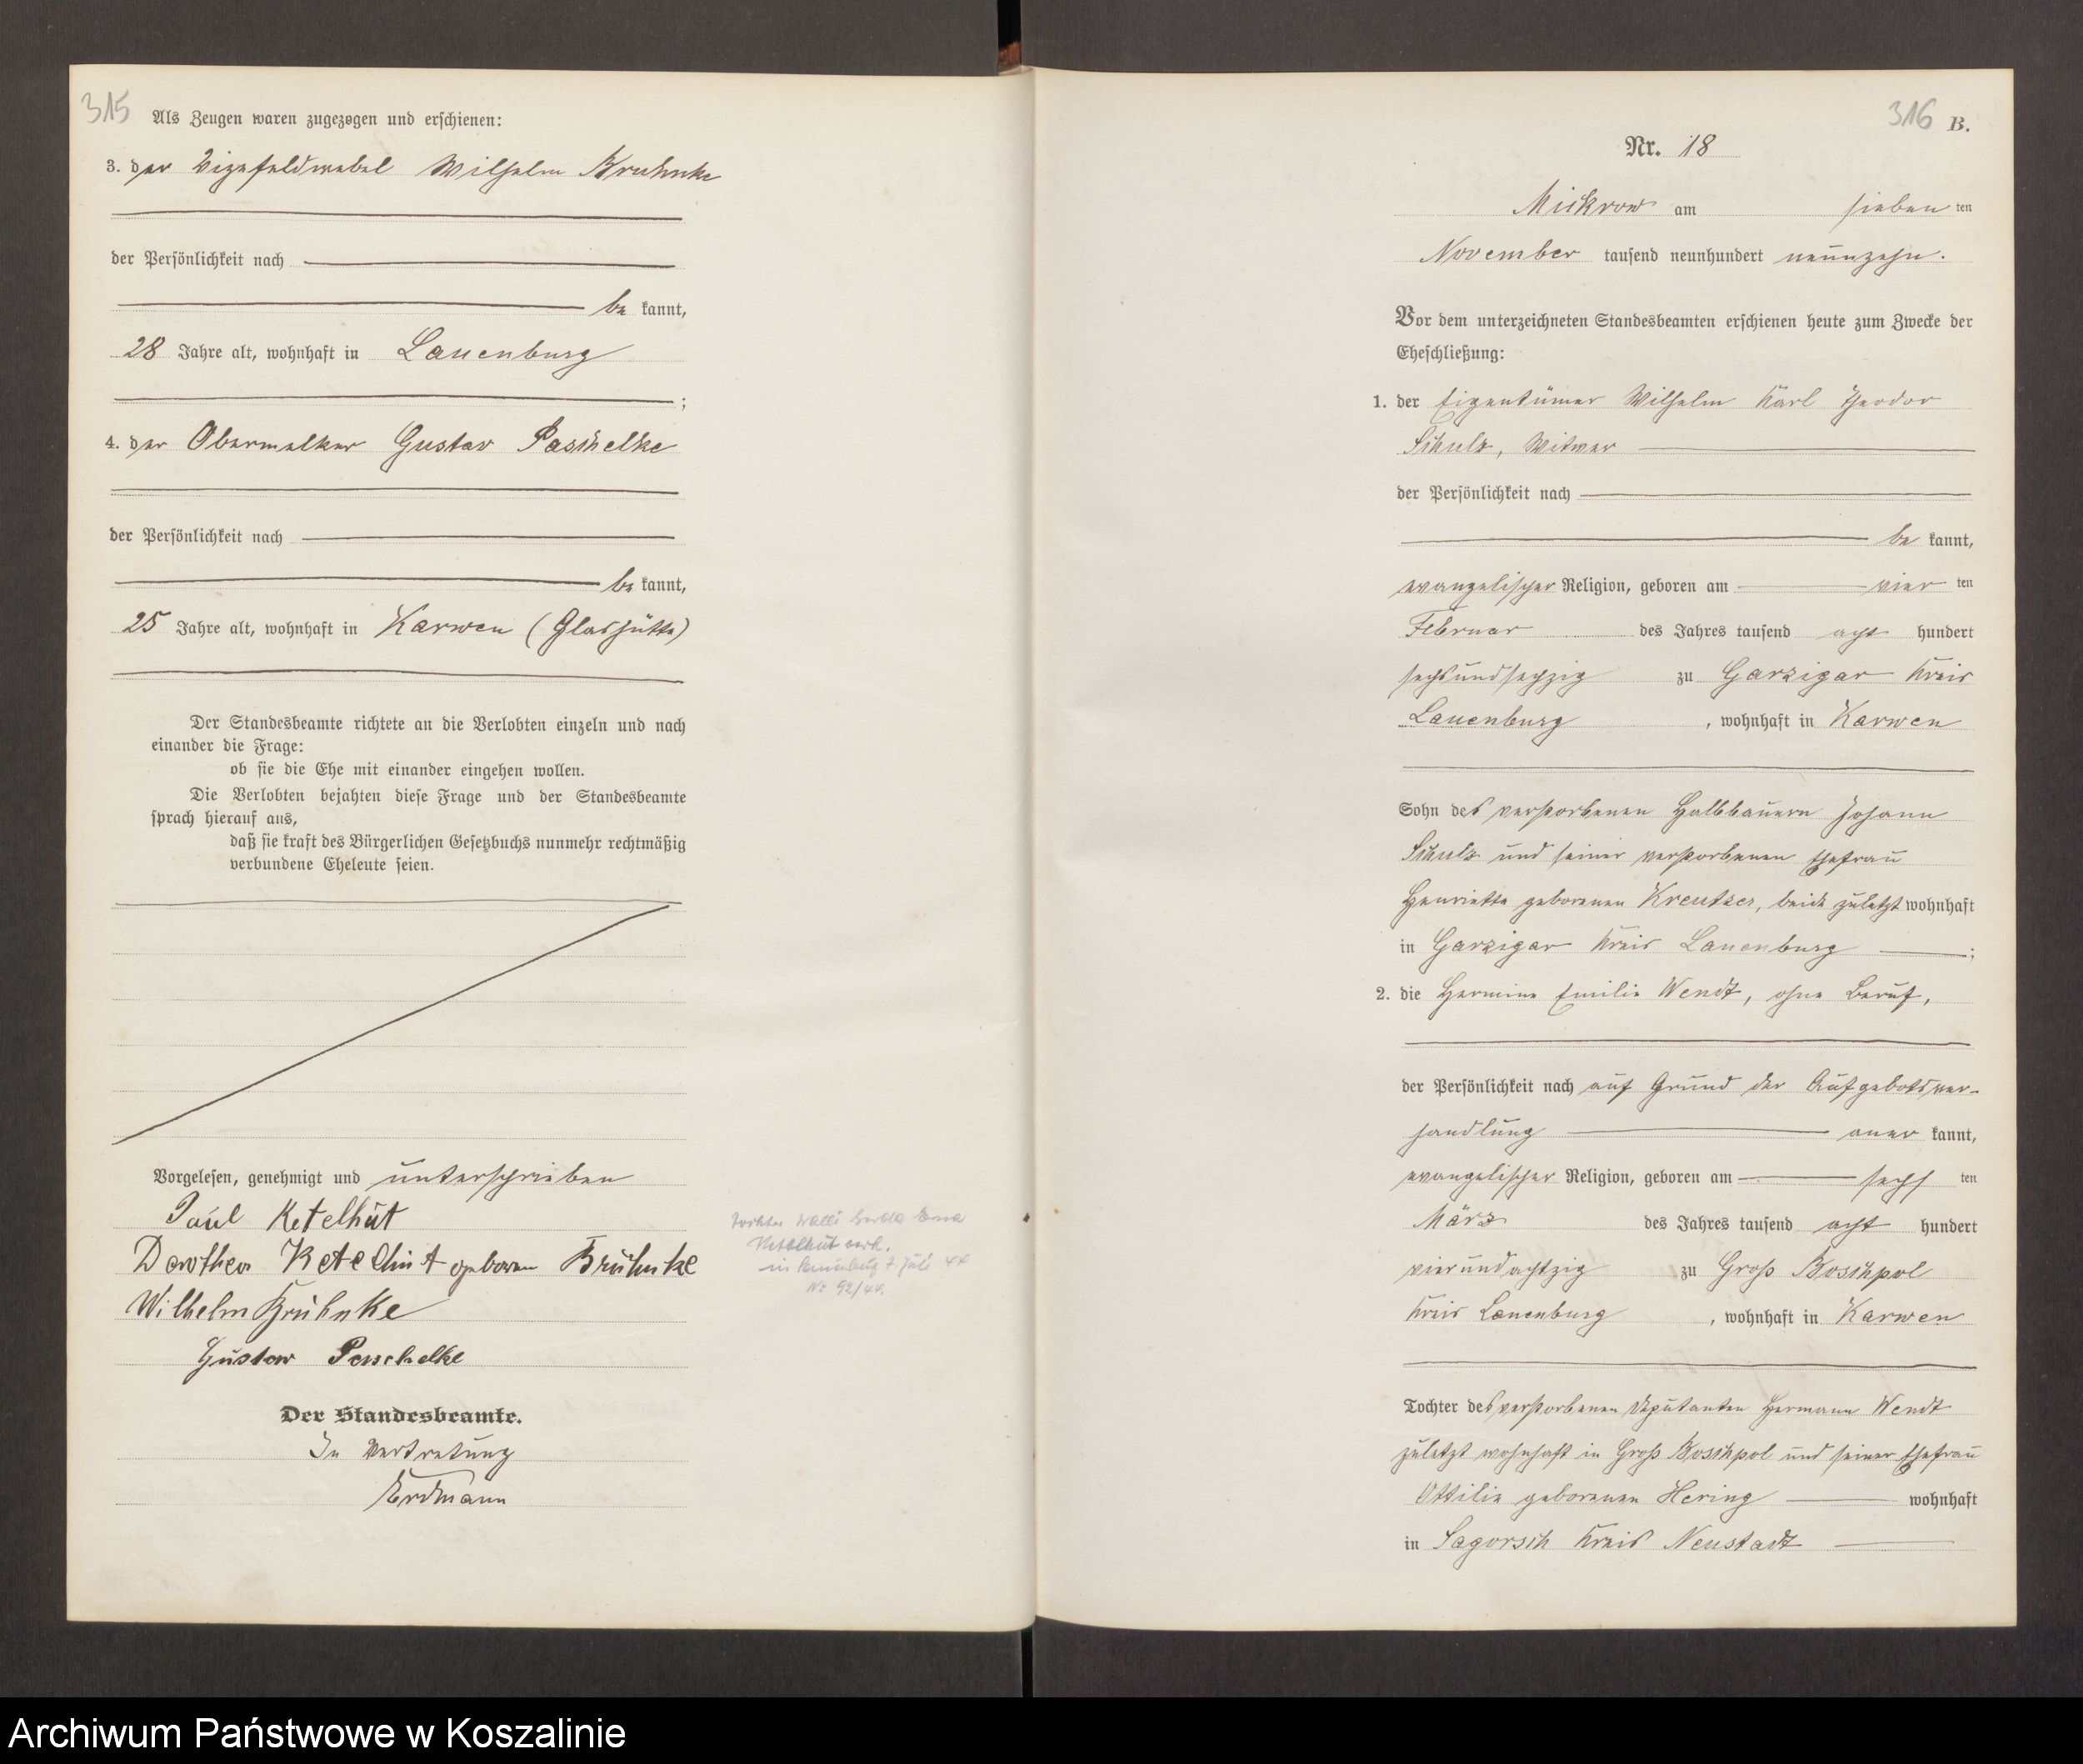 315
Als Zeugen waren zugezogen und erschienen:
3. der Vizefeldwebel Wilhelm Bruhnke
der Persönlichkeit nach
be kannt,
28 Jahre alt, wohnhaft in Lauenburg
;
4. der Obermelker Gustav Paschelke
der Persönlichkeit nach
be kannt,
25 Jahre alt, wohnhaft in Karwen (Glashütte)
Der Standesbeamte richtete an die Verlobten einzeln und nach
einander die Frage:
ob sie die Ehe mit einander eingehen wollen.
Die Verlobten bejahten diese Frage und der Standesbeamte
sprach hierauf aus,
daß sie kraft des Bürgerlichen Gesetzbuchs nunmehr rechtmäßig
verbundene Eheleute seien.
Vorgelesen, genehmigt und unterschrieben
Paul Ketelhut
Dorothea Ketelhut geboren Bruhnke
Wilhelm Bruhnke
Gustav Paschelke
Der Standesbeamte.
In Vertretung
Erdmann
Tochter
Ketelhut
Juli 44
Nr 92/44.
316 B.
Nr. 18
Mickrow am sieben ten
November tausend neunhundert neunzehn.
Vor dem unterzeichneten Standesbeamten erschienen heute zum Zwecke der
Eheschließung:
1. der Eigentümer Wilhelm Karl Theodor
Schulz, Witwer
der Persönlichkeit nach
be kannt,
evangelischer Religion, geboren am vier ten
Februar des Jahres tausend acht hundert
sechsundsechzig zu Garzigar Kreis
Lauenburg , wohnhaft in Karwen
Sohn des verstorbenen Halbbauern Johann
Schulz und seiner verstorbenen Ehefrau
Henriette geborenen Kreutzer, beide zuletzt wohnhaft
in Garzigar Kreis Lauenburg ;
2. die Hermine Emilie Wendt, ohne Beruf,
der Persönlichkeit nach auf Grund der Aufgebotsver-
handlung aner kannt,
evangelischer Religion, geboren am sechs ten
März des Jahres tausend acht hundert
vierundachtzig zu Groß Boschpol
Kreis Lauenburg , wohnhaft in Karwen
Tochter des verstorbenen Deputanten Hermann Wendt
zuletzt wohnhaft in Groß Boschpol und seiner Ehefrau
Ottilie geborenen Hering wohnhaft
in Sagorsch Kreis Neustadt
Archiwum Państwowe w Koszalinie